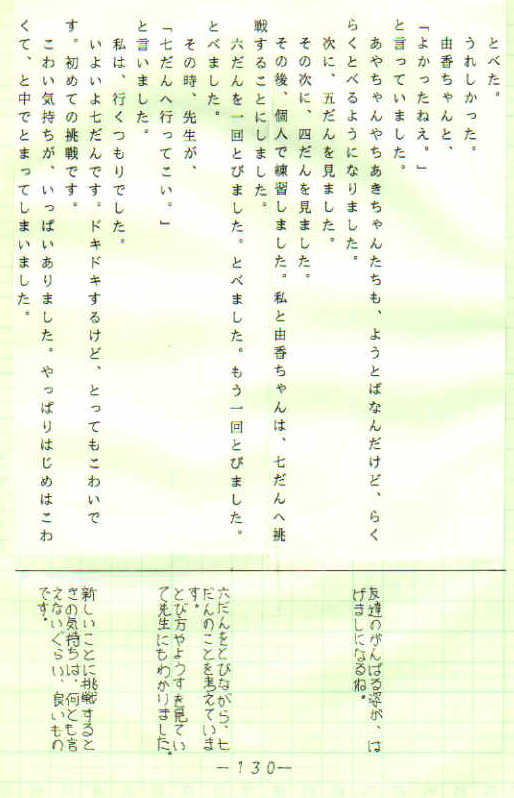 とべた。
うれしかった。
由香ちゃんと、
「よかったねえ。」
と言っていました。
あやちゃんやちあきちゃんたちも、ようとばなんだけど、らく
らくとべるようになりました。
次に、五だんを見ました。
その次に、四だんを見ました。
その後、個人で練習しました。私と由香ちゃんは、七だんへ挑
戦することにしました。
六だんを一回とびました。とべました。もう一回とびました。
とべました。
その時、先生が、
「七だんへ行ってこい。」
と言いました。
私は、行くつもりでした。
いよいよ七だんです。ドキドキするけど、とってもこわいで
す。初めての挑戦です。
こわい気持ちが、いっぱいありました。やっぱりはじめはこわ
くて、と中でとまってしまいました。
友達のがんばる姿が、は
げましになるね。
六だんをとびながら、七
だんのことを考えていま
す。
とび方やようすを見てい
て先生にもわかりました。
新しいことに挑戦すると
きの気持ちは、何とも言
えないぐらい、良いもの
です。
—130—